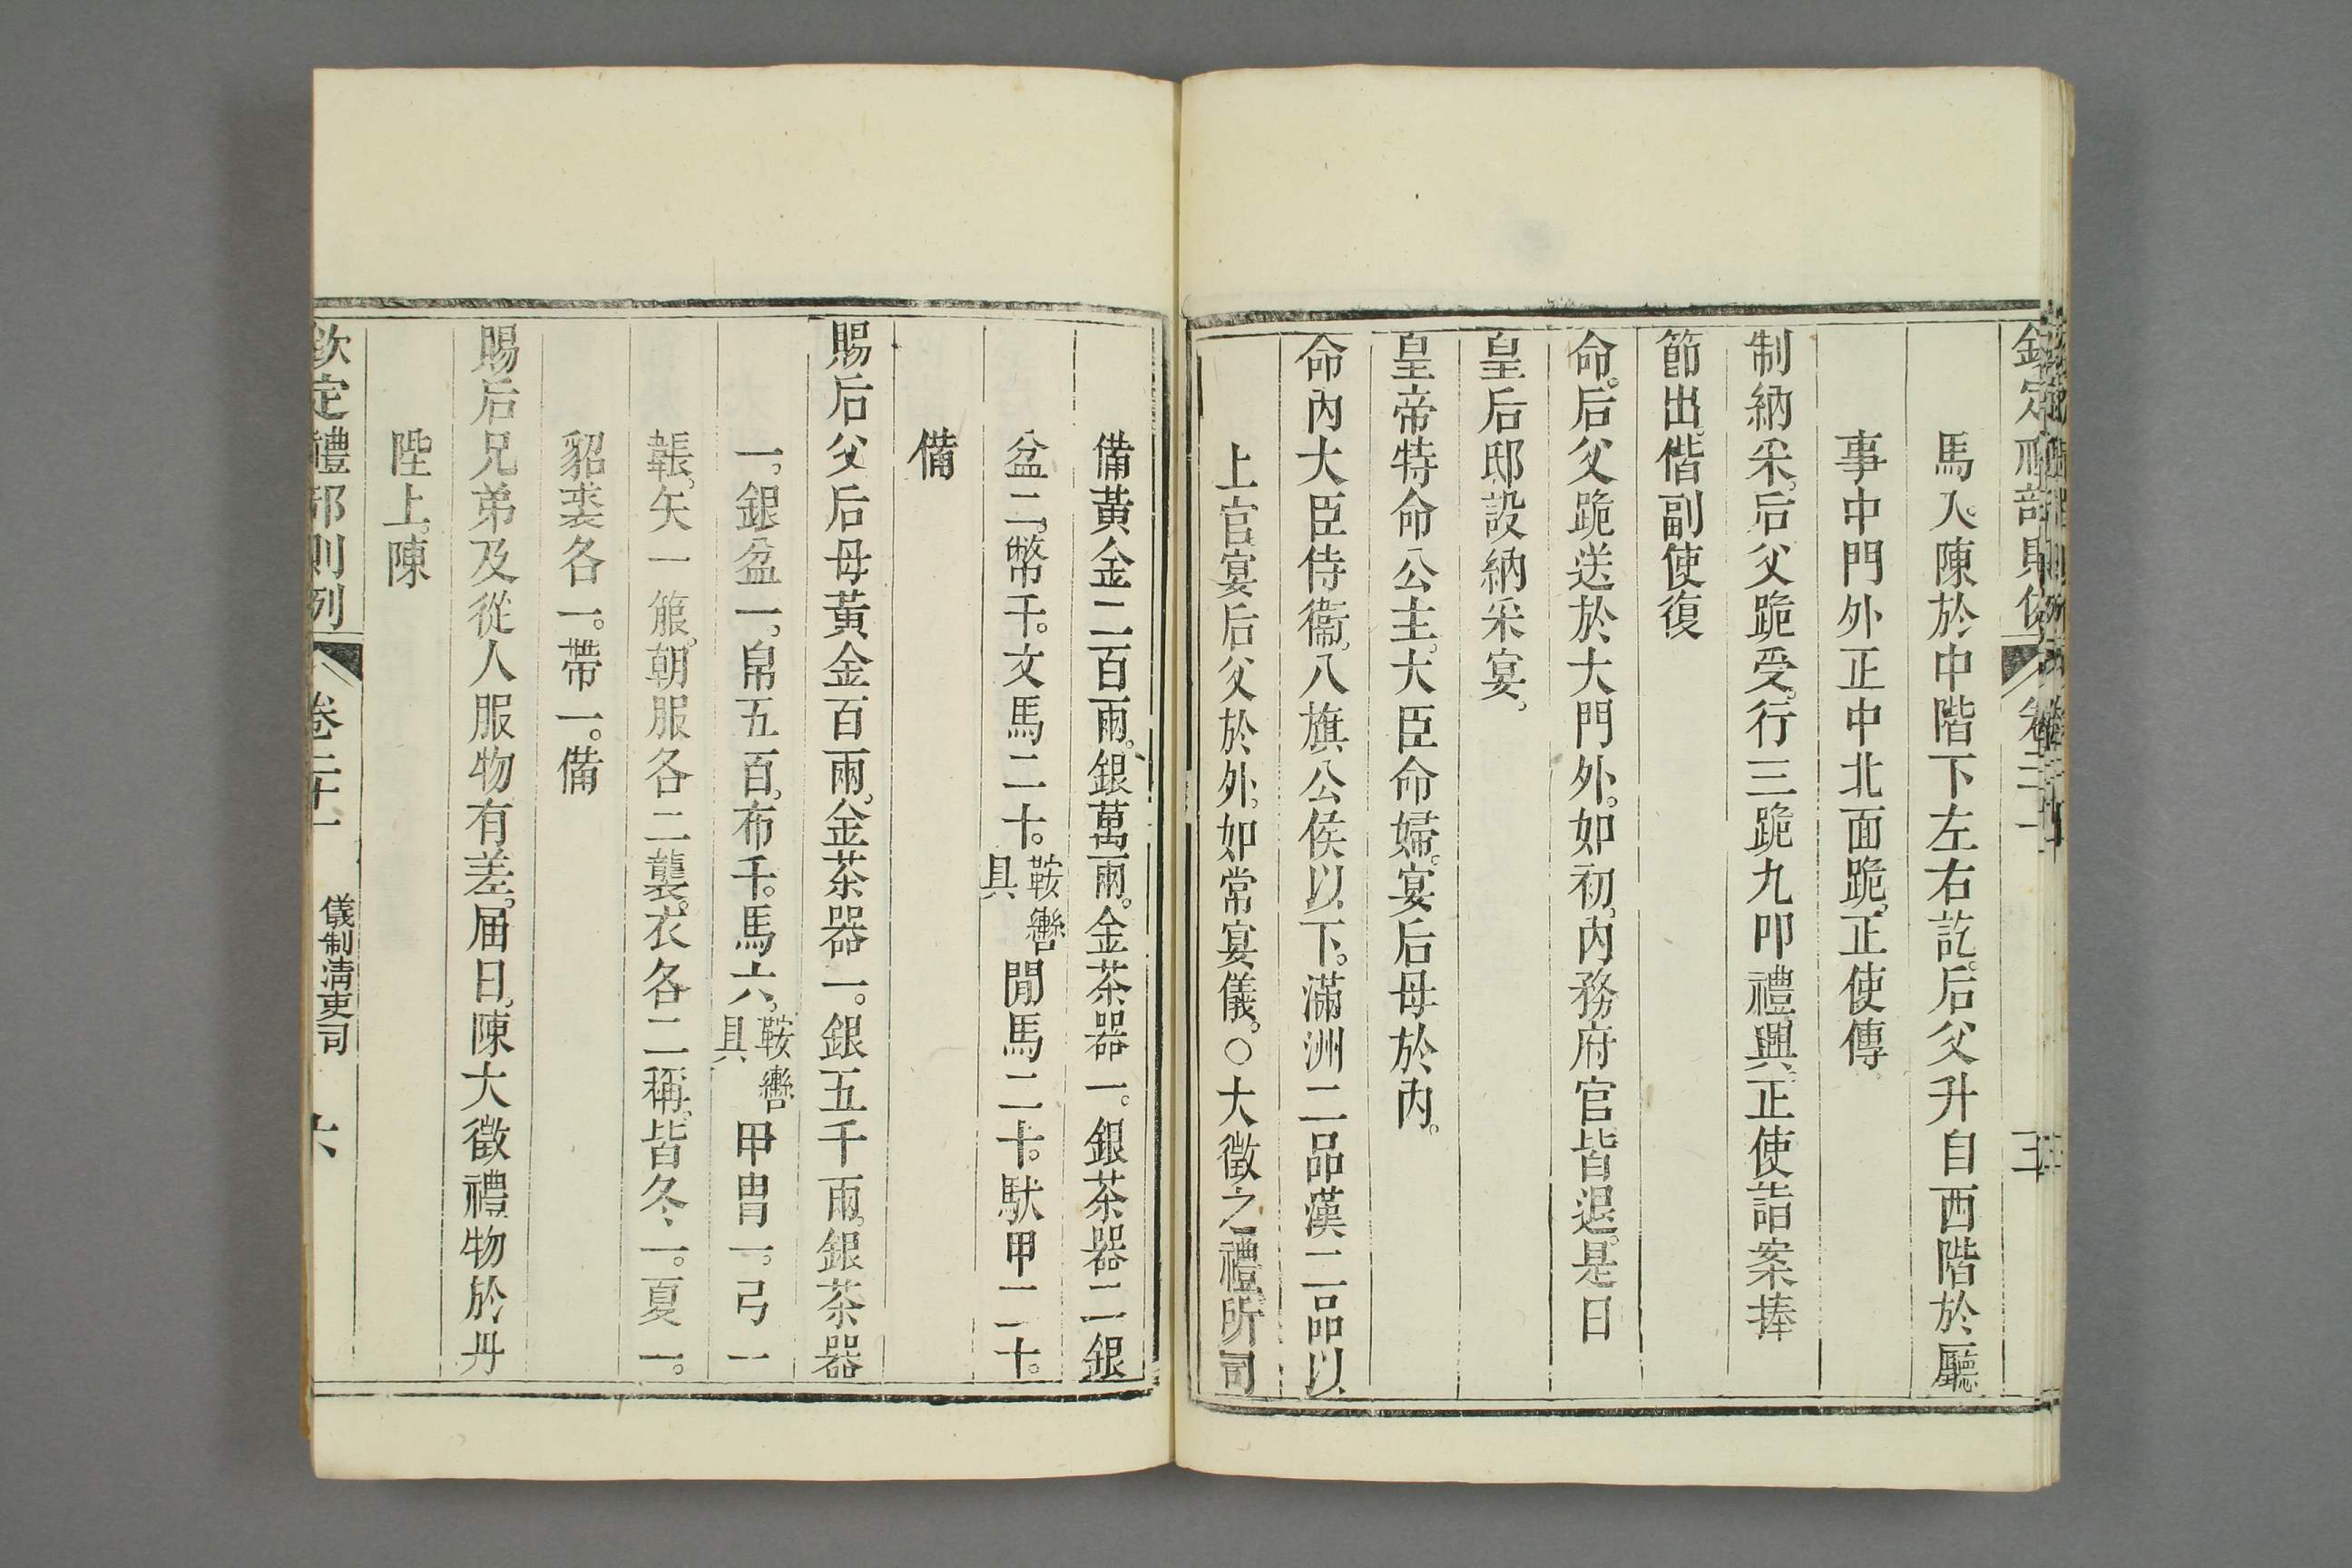 馬入。陳於中階下左右訖。后父升自西階於廳
事中門外正中北面跪。正使傳
制納采。后父跪受。行三跪九叩禮。興。正使詣案捧
節出。偕副使復
命。后父跪送於大門外。如初。內務府官皆退。是日
皇后邸設納采宴。
皇帝特命公主。大臣命婦。宴后母於內。
命內大臣侍衞。八旗公侯以下。滿洲二品漢二品以
上官宴后父於外。如常宴儀。○大徵之禮。所司
備黃金二百兩。銀萬兩。金茶器一。銀茶器二。銀
盆二。幣千。文馬二十。鞍轡具閒馬二十。馱甲二十。
備
賜后父后母黃金百兩。金茶器一。銀五千兩。銀茶器
一。銀盆一。帛五百。布千。馬六。鞍轡具甲冑一。弓一
韔。矢一箙。朝服各二襲。衣各二稱。皆冬一。夏一。
貂裘各一。帶一。備
賜后兄弟及從人服物有差。屆日。陳大徵禮物於丹
陛上。陳
欽定禮部則例 卷二十一 儀制清吏司 六